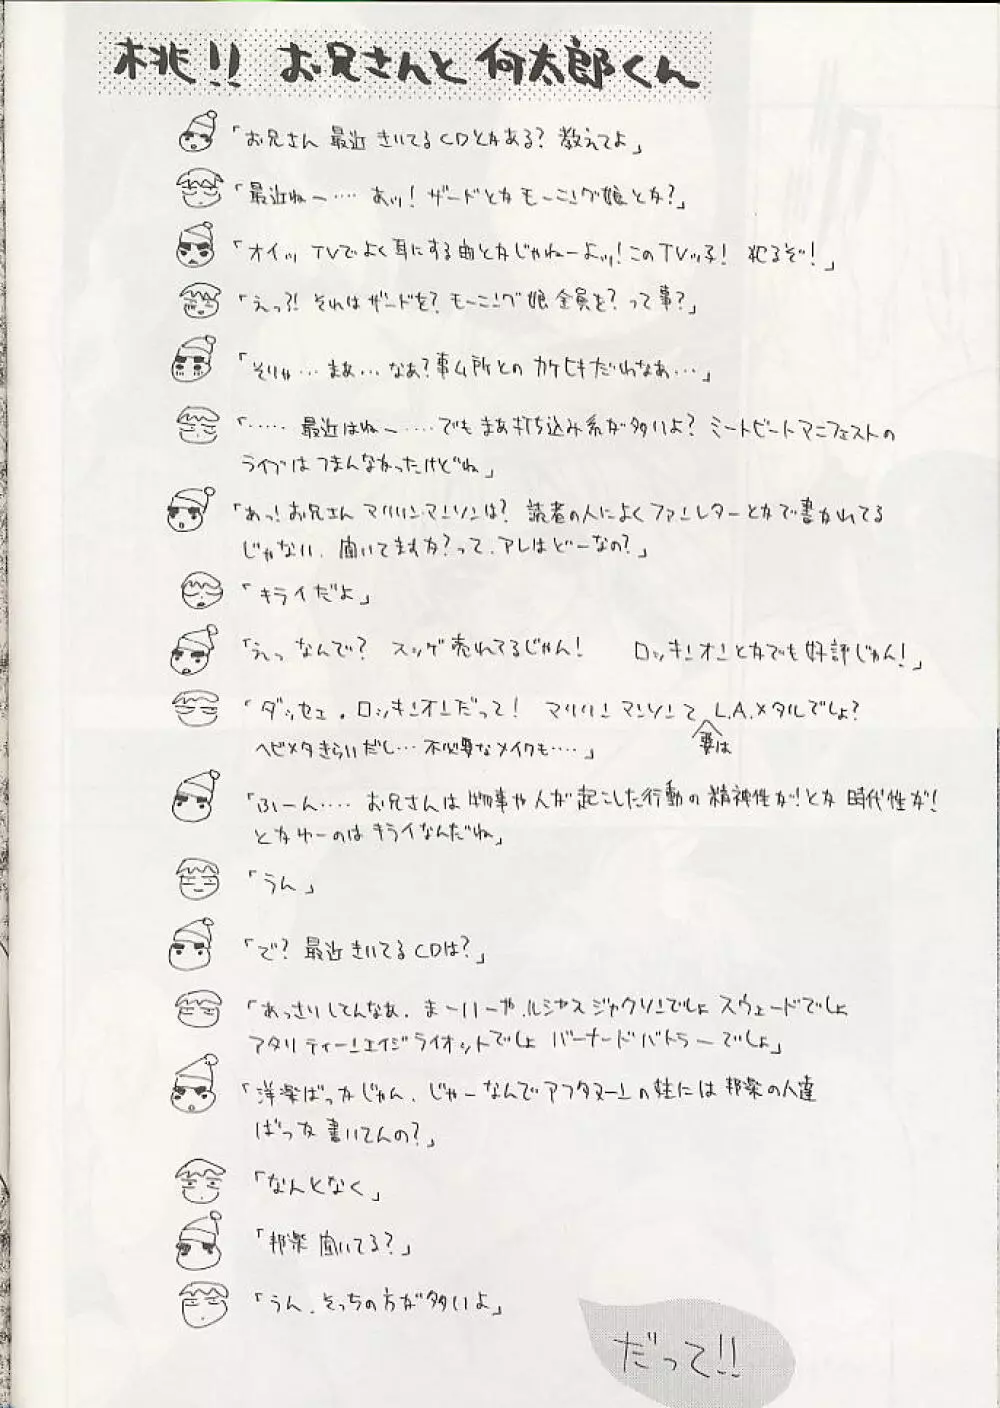 桃!! お兄さんと何太郎くん
「お兄さん 最近 きいてるCDとかある? 教えてよ」
「最近ねー‥‥ あッ! ザードとかモーニング娘とか?」
「オイッ TVでよく耳にする曲とかじゃねーよッ!このTVッ子! 犯るぞ!」
「えっ?! それはザードを? モーニング娘全員を? って事?」
「そりゃ‥‥まぁ‥‥なぁ? 事ム所との カケヒキだわなぁ‥‥」
「‥‥‥ 最近はねー‥‥‥でもまあ打ち込み系が多いよ? ミートビートマニフェストの
ライブはつまんなかったけどね」
「あっ! お兄さん マリリンマンソンは? 読者の人によくファンレターとかで書かれてる
じゃない、聞いてますか?って、アレはどーなの?」
「キライだよ」
「えっ なんで? スッゲ売れてるじゃん! ロッキンオンとかでも好評じゃん!」
「ダッセェ。ロッキンオンだって! マリリンマンソンて要はL.A.メタルでしょ?
ヘビメタきらいだし‥‥不必要なメイクも‥‥」
「ふーん‥‥ お兄さんは物事や人が起こした行動の精神性が!とか 時代性が!
とかゆーのは キライなんだね」
「うん」
「で? 最近きいてるCDは?」
「あっさりしてんなぁ、まーいーや、ルシャスジャクソンでしょ スウェードでしょ
アタリティーンエイジライオットでしょ バーナードバトラーでしょ」
「洋楽ばっかじゃん、じゃーなんでアフタヌーンの柱には邦楽の人達
ばっか書いてんの?」
「なんとなく」
「邦楽 聞いてる?」
「うん、そっちの方が多いよ」
だって!!